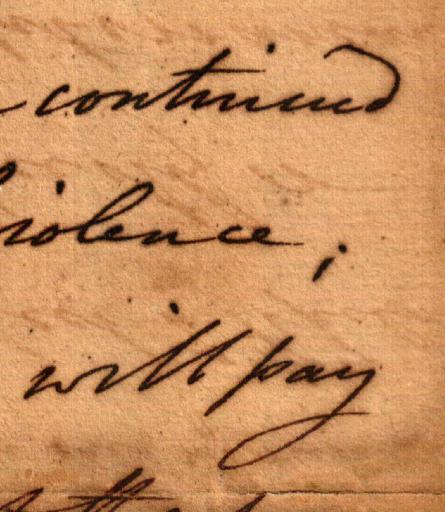 continued
violence ;
will pay